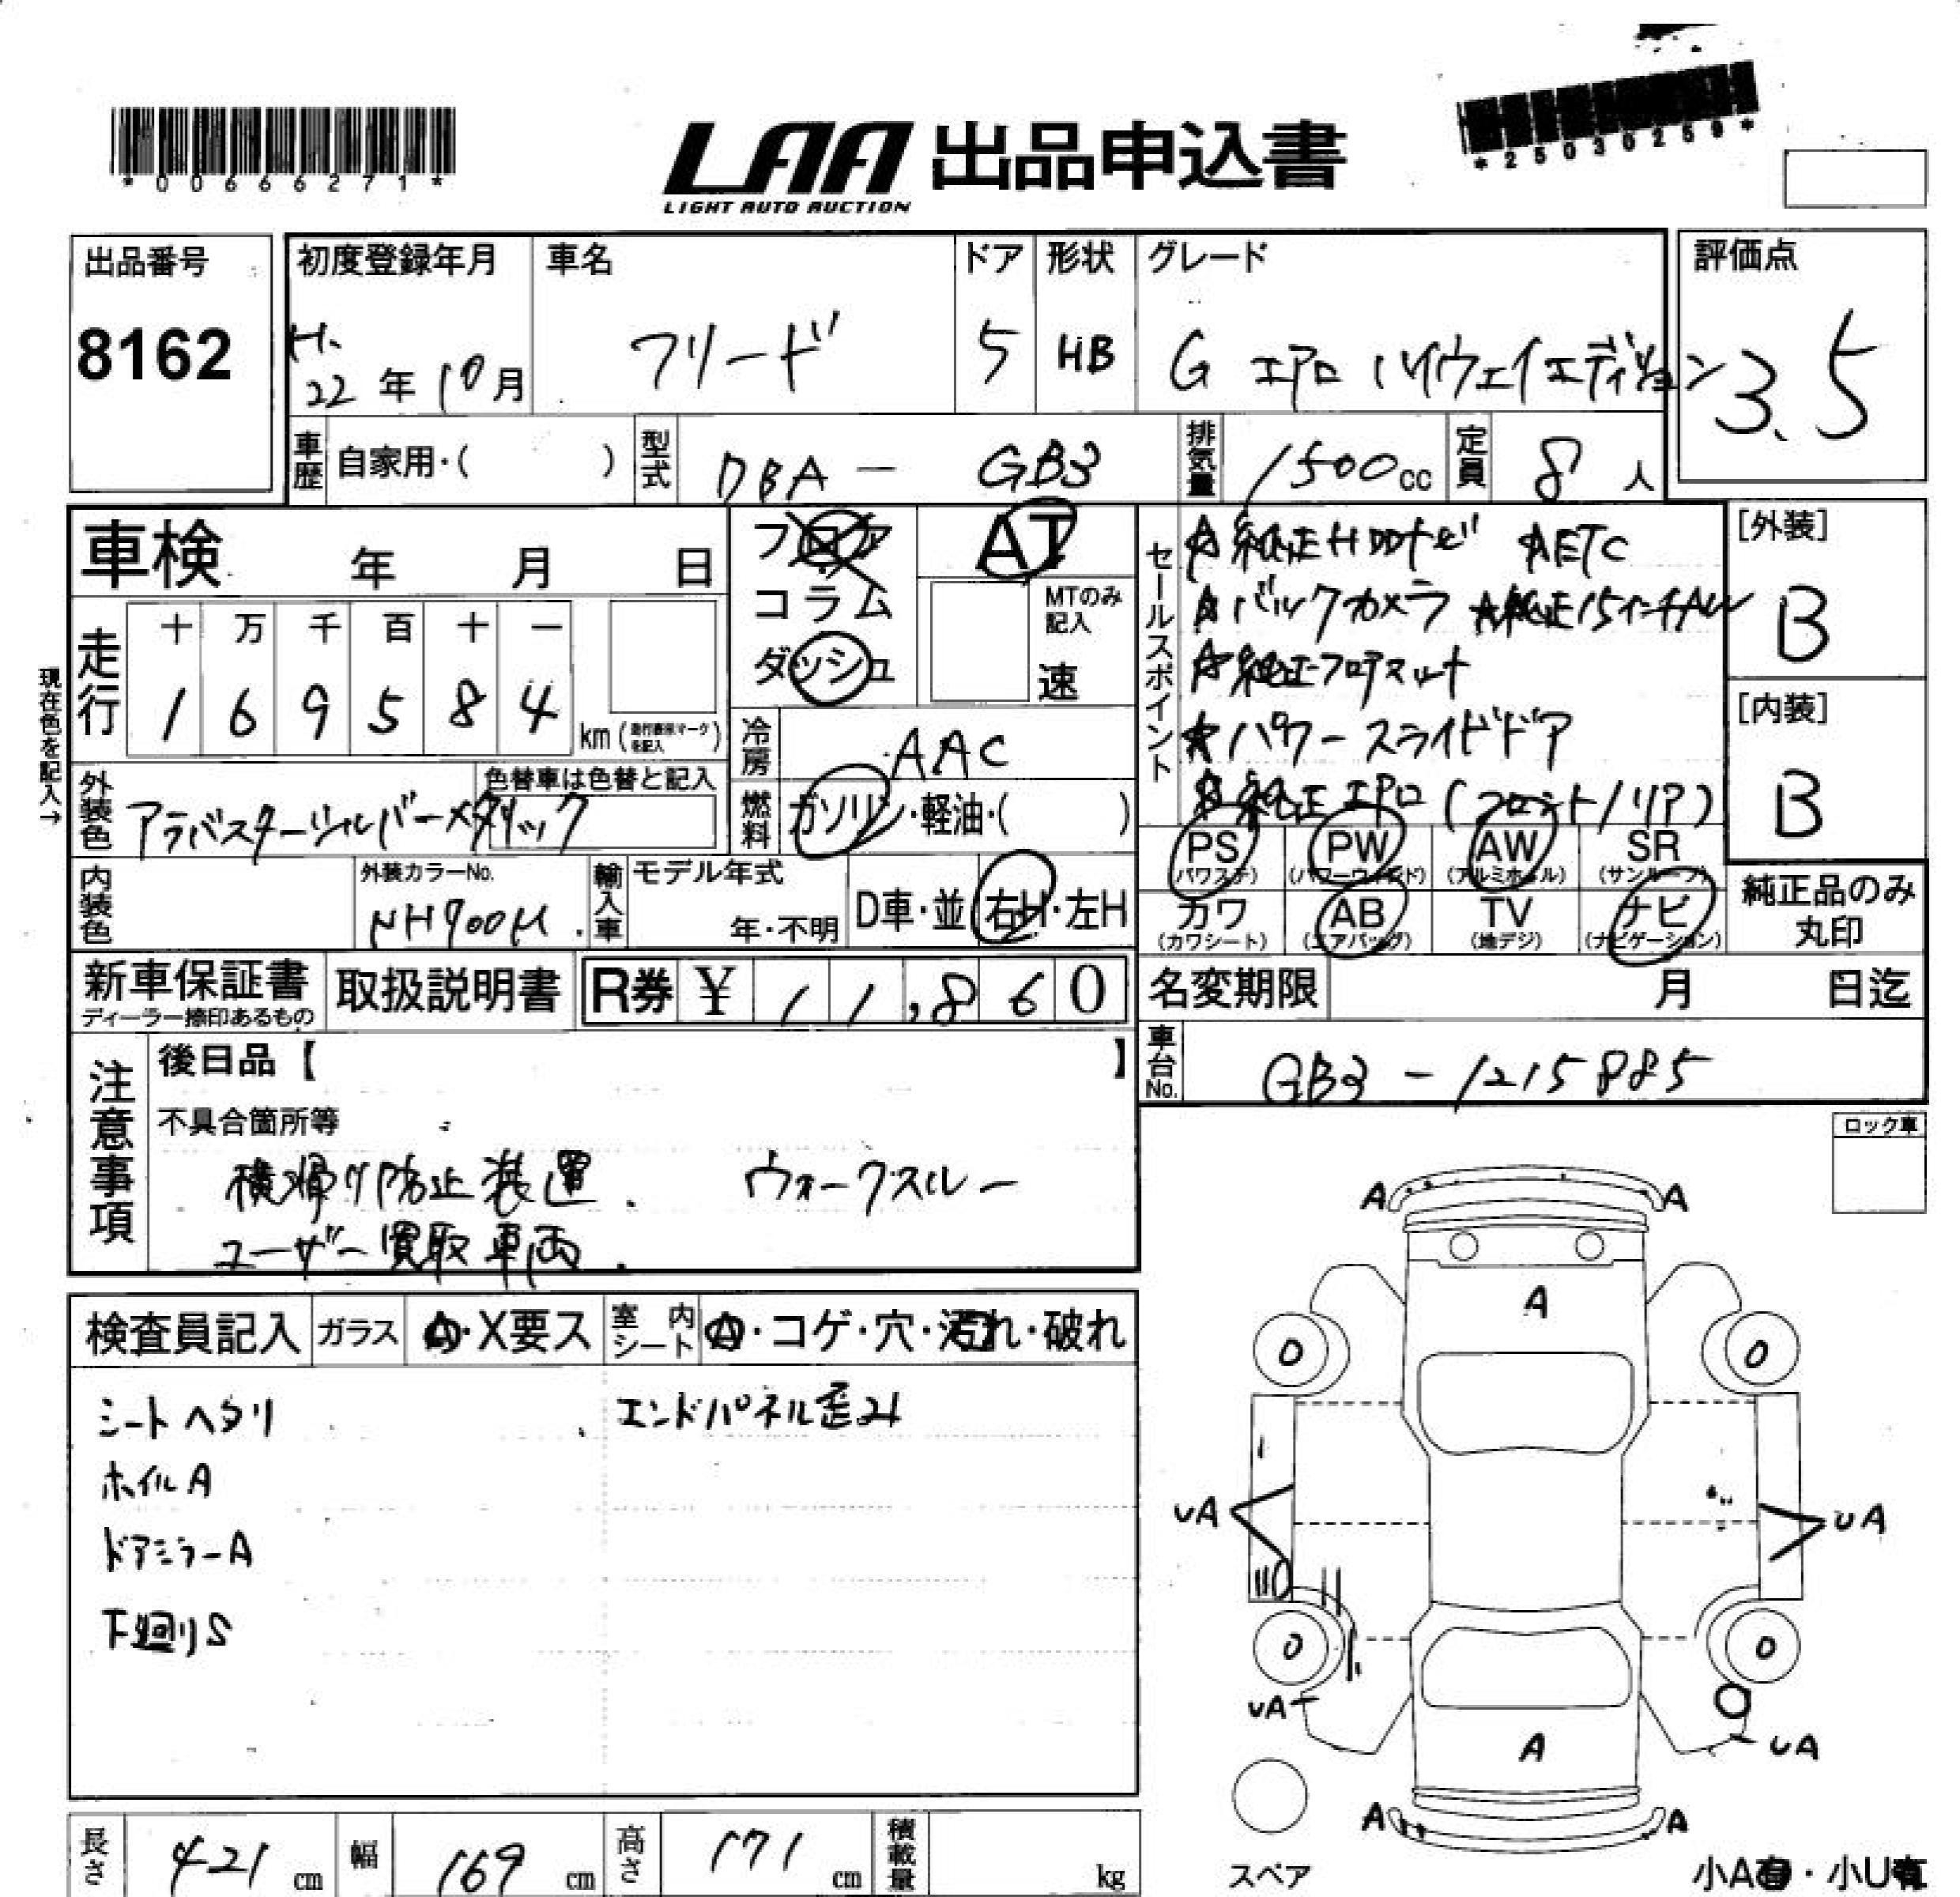 *00666271*
LAA 出品申込書
LIGHT AUTO AUCTION
*25030259*
出品番号
8162
初度登録年月
H.
22年10月
車名
フリード
ドア
5
形状
HB
グレード
G エアロ ハイウェイエディション
評価点
3.5
車歴
自家用・( )
型式
DBA - GB3
排気量
1500cc
定員
8人
車検 年 月 日
フロア
コラム
ダッシュ
AT
MTのみ
記入
速
セールスポイント
☆純正HDDナビ ☆ETC
☆バックカメラ ☆純正15インチAW
☆純正フロアマット
☆パワースライドドア
☆純正エアロ(フロント/リア)
[外装]
B
[内装]
B
現在色を記入→
走行
十 万 千 百 十 一
1 6 9 5 8 4
km(走行表示マークを記入)
冷房
AAC
外装色
アラバスターシルバーメタリック
色替車は色替と記入
燃料
ガソリン・軽油・( )
PS
(パワステ)
PW
(パワーウィンド)
AW
(アルミホイル)
SR
(サンルーフ)
カワ
(カワシート)
AB
(エアバッグ)
TV
(地デジ)
ナビ
(ナビゲーション)
純正品のみ
丸印
内装色
外装カラーNo.
NH700M
輸入車
モデル年式
年・不明
D車・並
右H・左H
新車保証書
ディーラー捺印あるもの
取扱説明書
R券 ¥ 11,860
名変期限 月 日迄
車台No.
GB3-1215885
注意事項
後日品【 】
不具合箇所等
横滑り防止装置. ウォークスルー
ユーザー買取車両.
ロック車
検査員記入
ガラス
A・X要ス
室内
シート
A・コゲ・穴・汚れ・破れ
シートヘタリ
エンドパネル歪み
ホイルA
ドアミラーA
下廻りS
A A
A
0 0
UA UA
0 0
UA UA
A
A A
スペア
小A有・小U有
長さ
421cm
幅
169cm
高さ
171cm
積載量
kg